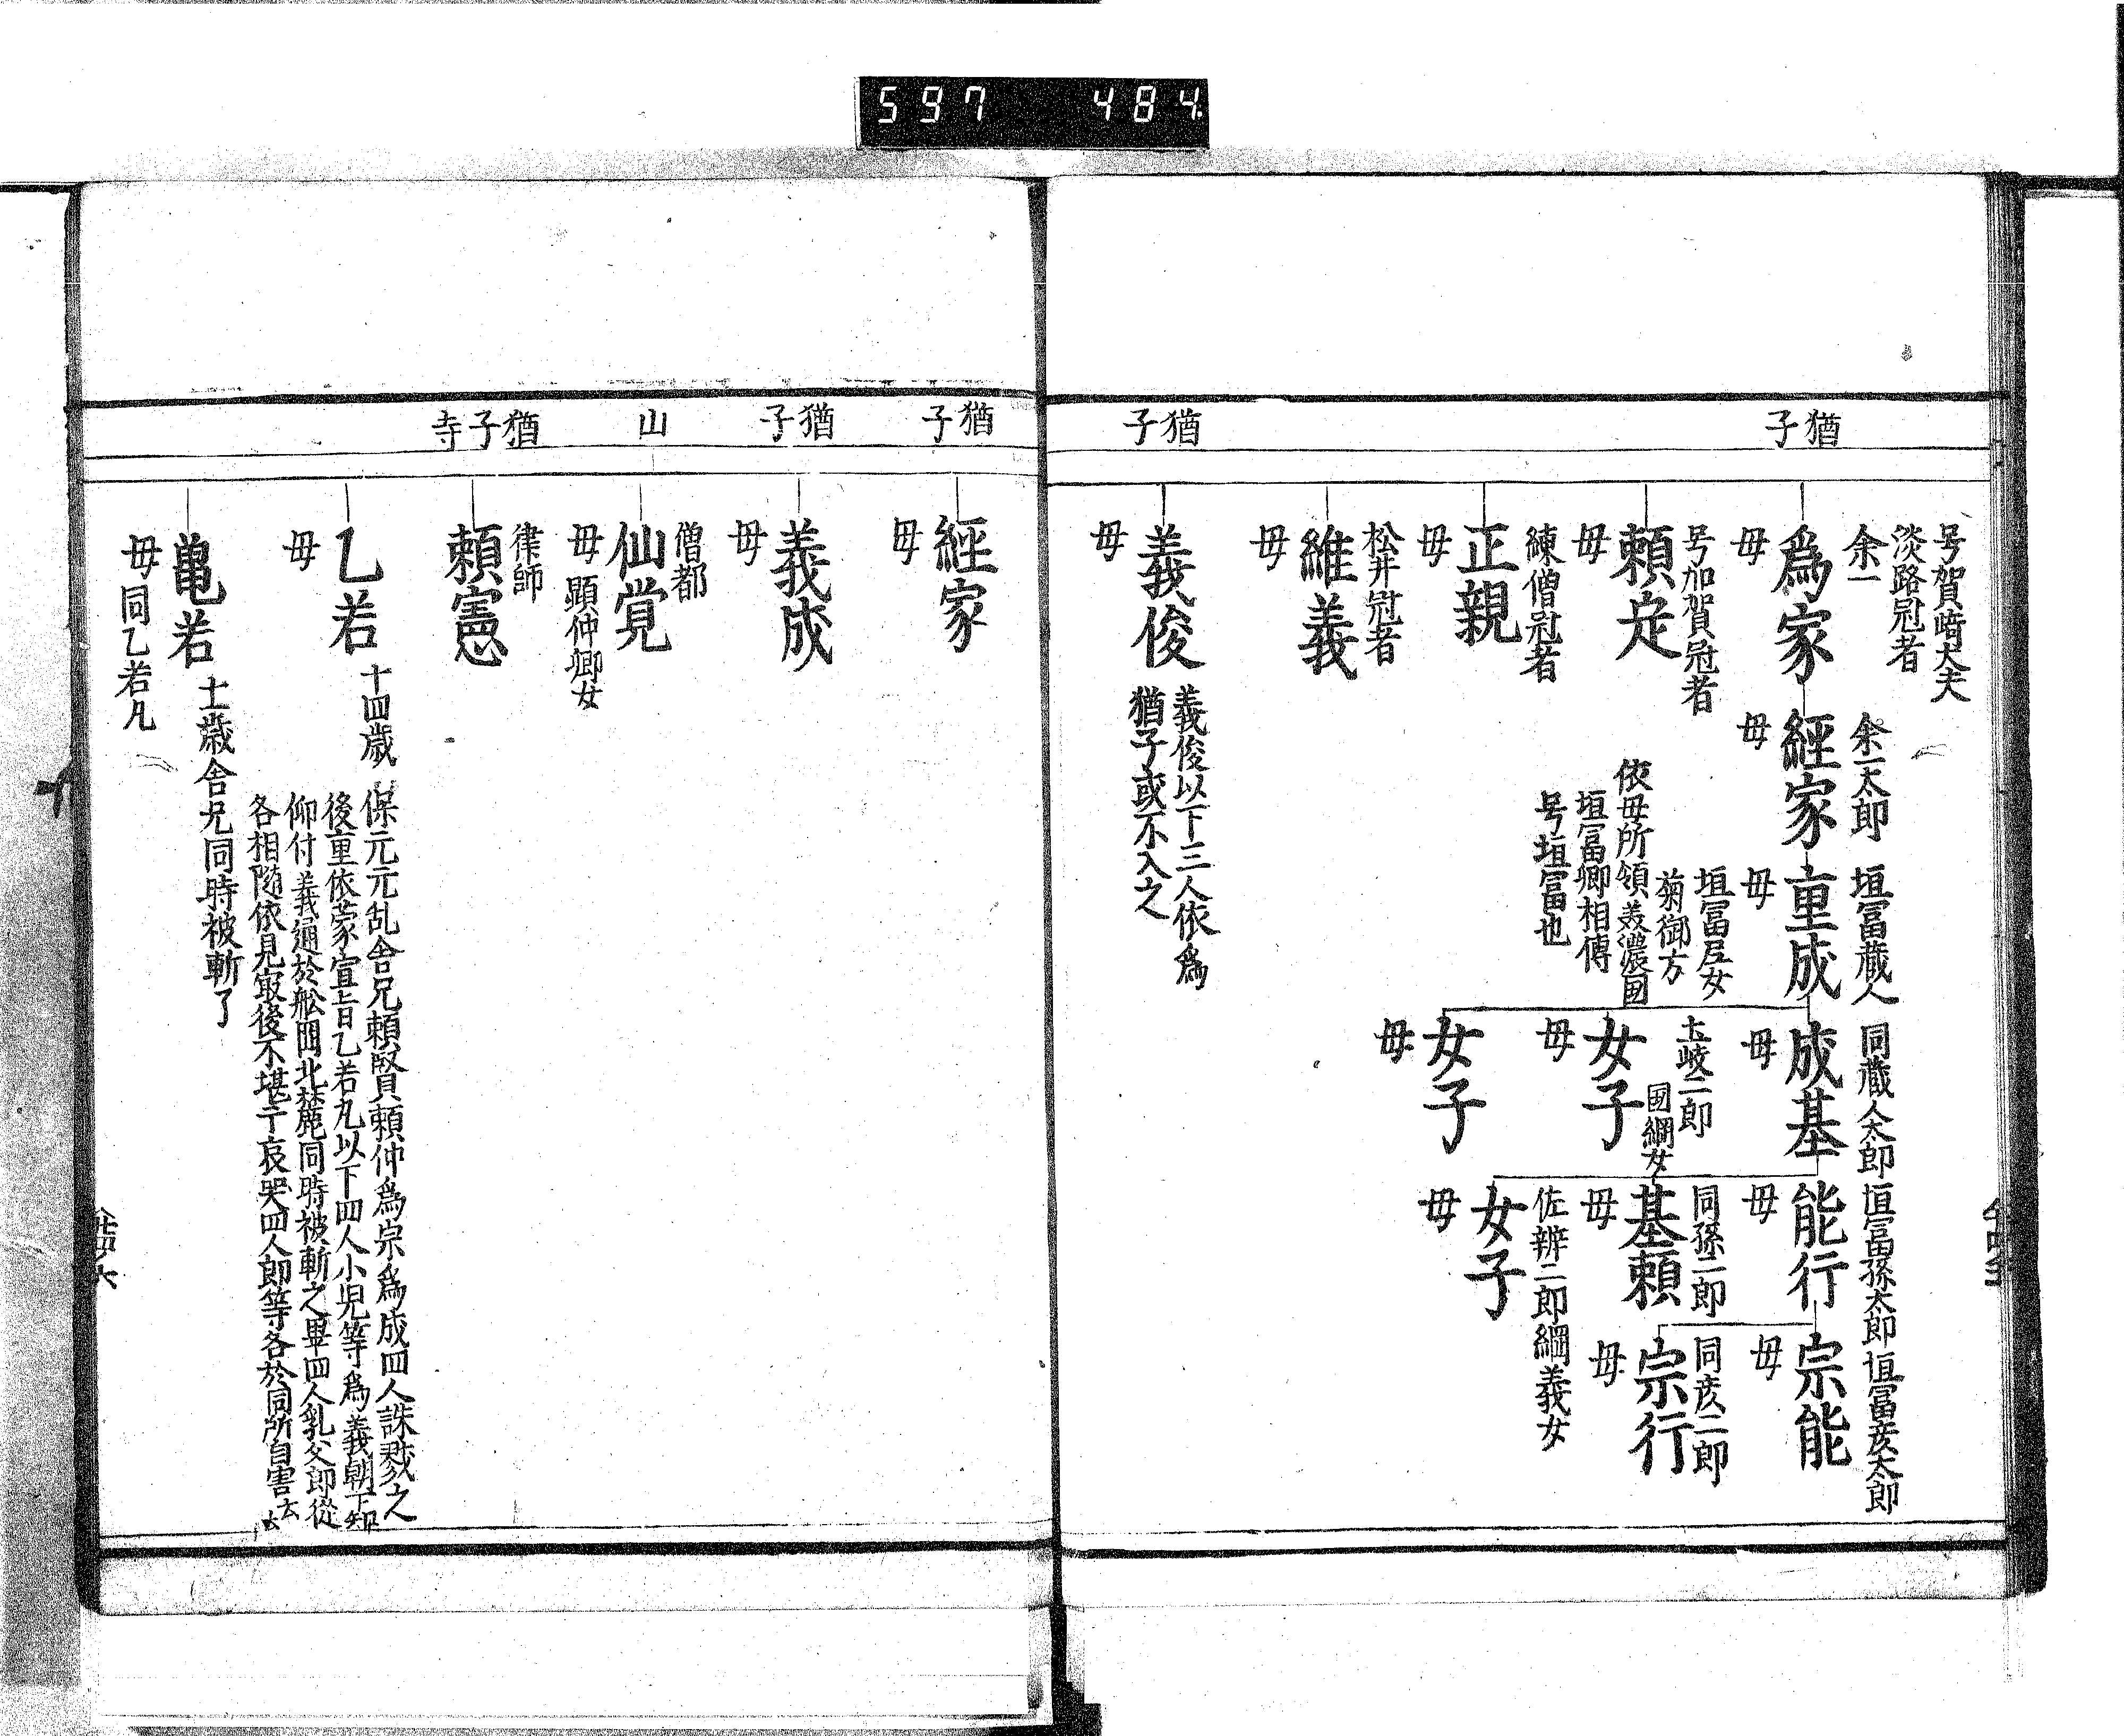 597 484
猶子
号賀﨑大夫
淡路冠者
余一
為家
母
余一太郎
經家
母
垣冨蔵人
重成
母
同蔵人太郎
成基
母
垣冨孫太郎
能行
母
垣冨彦太郎
宗能
母
同彦二郎
宗行
母
同孫二郎
基頼
母
佐辨二郎綱義女
女子
母
土岐二郎
国綱女
女子
母
女子
母
垣冨尼女
菊御方
依母所領美濃国
垣冨郷相傳
号垣冨也
号加賀冠者
頼定
母
練僧冠者
正親
母
松井冠者
維義
母
猶子
義俊
母
義俊以下三人依為
猶子或不入之
猶子
經家
母
猶子
義成
母
山
僧都
仙覚
母 顕仲卿女
猶子寺
律師
頼憲
乙若 十四歳
母
保元元乱舎兄頼賢頼仲為宗為成四人誅戮之
後重依蒙宣旨乙若丸以下四人小児等為義朝下知
仰付義通於舩岡北麓同時被斬之畢四人乳父郎従
各相随依見冣後不堪于哀哭四人郎等各於同所自害云云
亀若 十一歳舎兄同時被斬了
母 同乙若丸